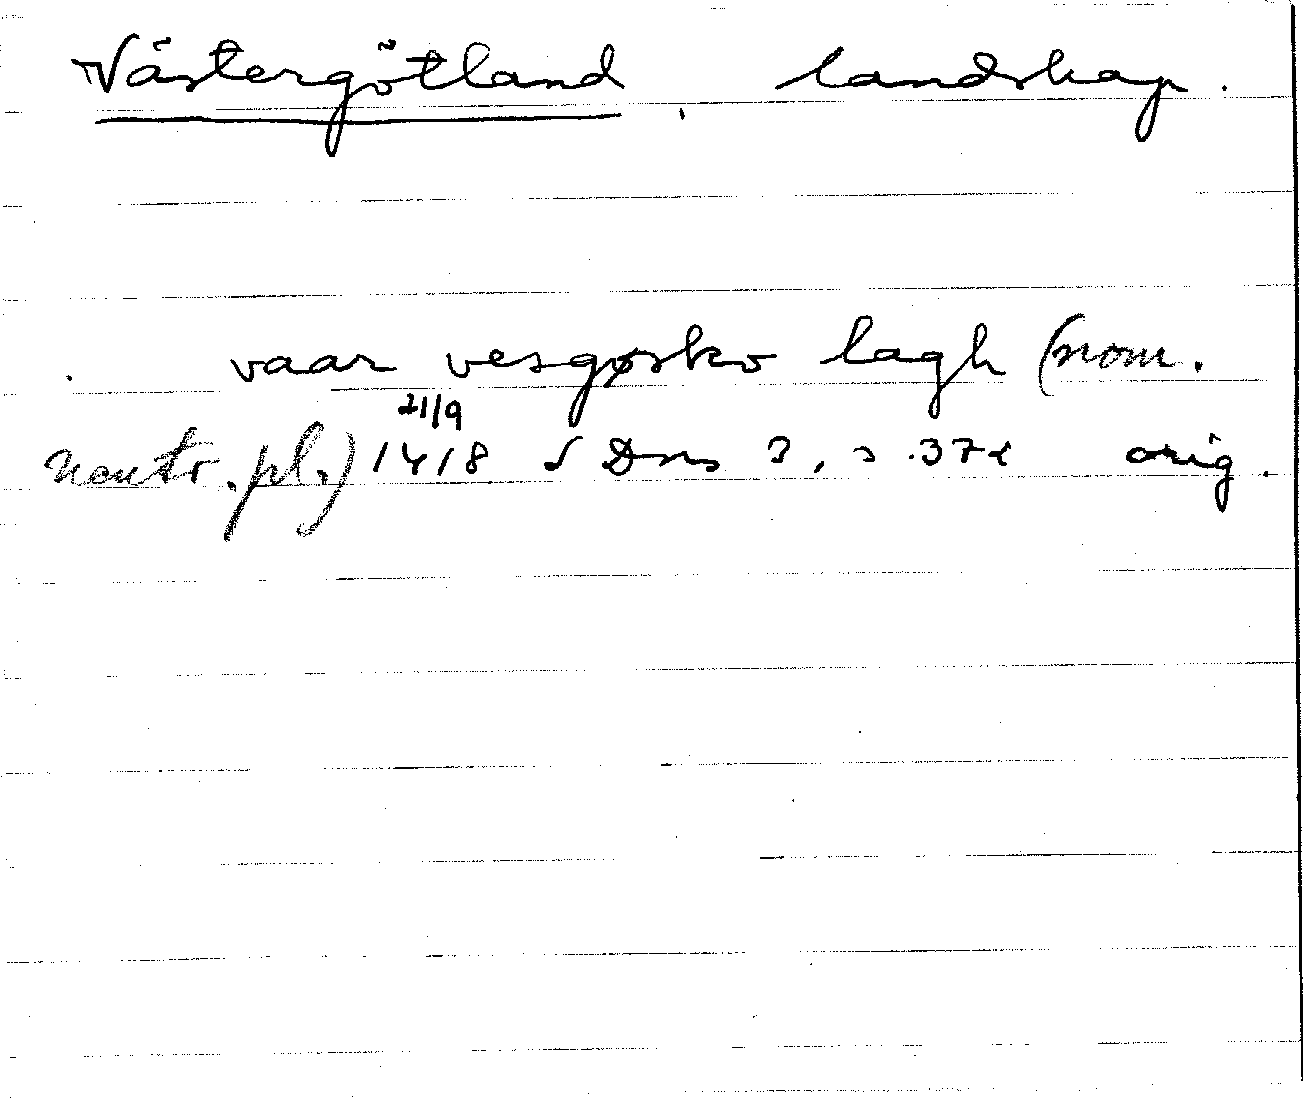 Västergötland, landskap.
vaar vesgøsko lagh (nom.
21/9
neutr. pl.) 1418 SDns 3, s. 372 orig.